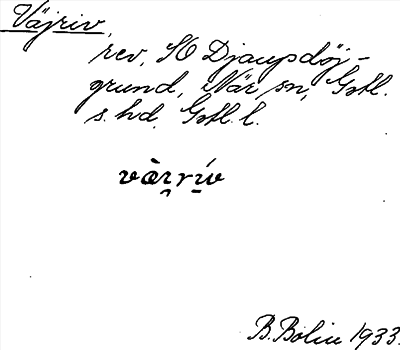 Väjriv,
rev, SO Djaupdöj-
grund, När sn, Gotl.
s. hd. Gotl. l.
vä̀i̯rív
B. Bolin 1933.